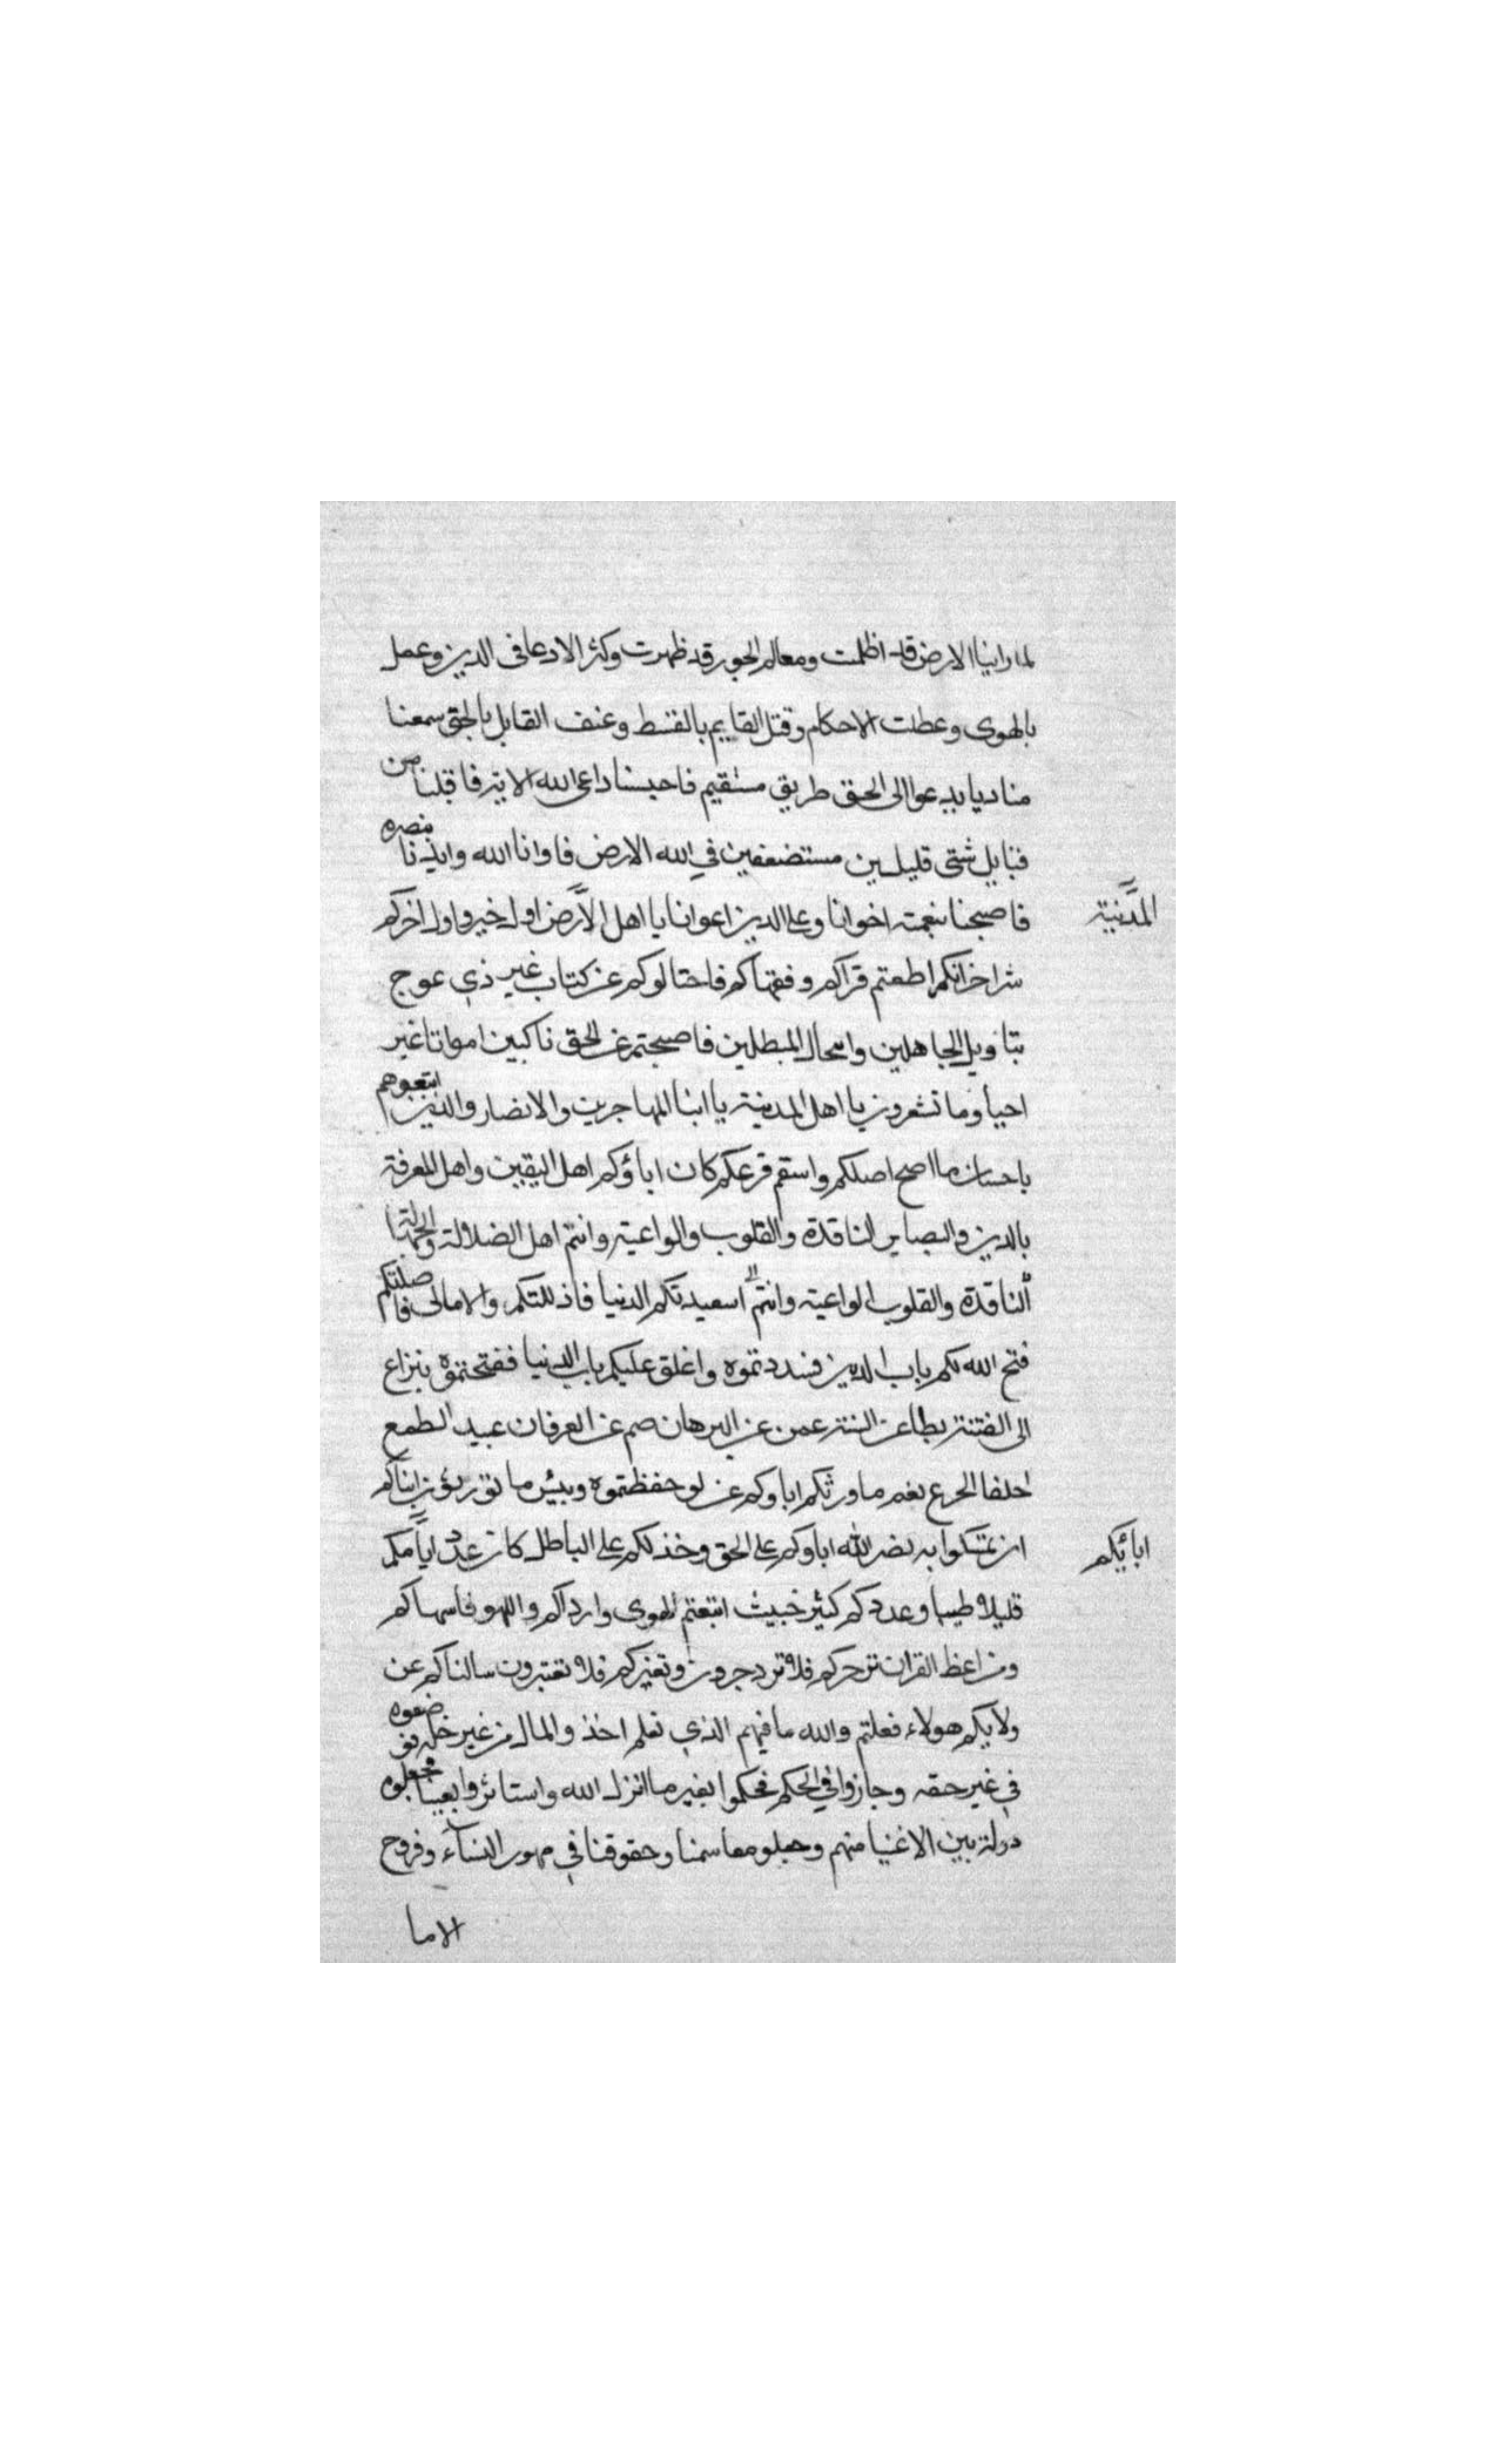 لما راينا الارض قد اظلمت ومعالم الجور قد ظهرت وكثر الادعا في الدين وعمل
بالهوى وعطلت الاحكام وقتل القايم بالقسط وعنف القايل بالحق سمعنا
مناديا يدعوا الى الحق طريق مستقيم فاجبنا داعي الله الاية فاقبلنا من
قبايل شتى قليلين مستضعفين في الله الارض فاوانا الله وايدنا بنصره
فاصبحنا بنعمته اخوانا وعلى الدين اعوانا يا اهل الارض اولكم خير واول اخركم
المدنية
شر اخر انكم اطعتم قراكم وفقهاكم فاختالوكم عن كتاب غير ذي عوج
بتاويل الجاهلين وانتحال المبطلين فاصبحتم عن الحق ناكبين امواتا غير
احيا وما تشعرون يا اهل المدينة يا ابنا المهاجرين والانصار والذين اتبعوهم
باحسان ما اصح اصلكم واسقم فرعكم كان اباؤكم اهل اليقين واهل المعرفة
بالدين والبصاير الناقدة والقلوب والواعية وانتم اهل الضلالة والجهالة
الناقدة والقلوب الواعية وانتم استعبدتكم الدنيا فاذلتكم والاماني فاضلتكم
فتح الله لكم باب الدين فسددتموه واغلق عليكم باب الدنيا ففتحتموه بنزاع
الى الفتنة بطا عن السنة عمين عن البرهان صم عن العرفان عبيد الطمع
احلفا الجزع نعم ما ورثكم اباوكم عن لو حفظتموه وبئس ما تورثون ابناكم
ان تمسكوا به نصر الله اباوكم على الحق وخذلكم على الباطل كان عدد ايامكم
ابائكم
قليلا طيبا وعددكم كثير خبيث اتبعتم الهوى وارداكم واللهو فاسهاكم
ومواعظ القران تزجركم فلا تزدجرون وتعبركم فلا تعتبرون سالناكم عن
ولايكم هولاء فعلتم والله ما فيهم الذي نعلم اخذ والمال من غير حله ضعوه
في غير حقه وجازوا في الحكم فحكموا بغير ما انزل الله واستاثروا بفيئنا فجعلوه
دولة بين الاغنيا منهم وجعلو مقاسمنا وحقوقنا في مهور النساء وفروج
الاما